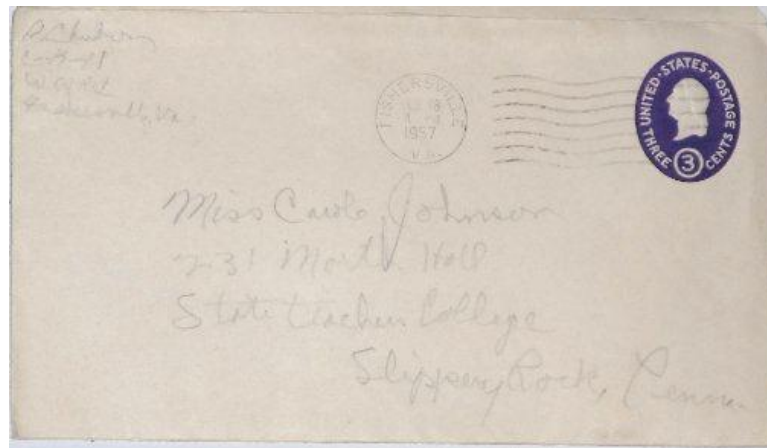 Fishersville, Va.
FISHERSVILLE
1957
VA.
UNITED·STATES·POSTAGE
THREE 3 CENTS
Miss Carole Johnson
231 North Hall
State Teachers College
Slippery Rock, Penna.